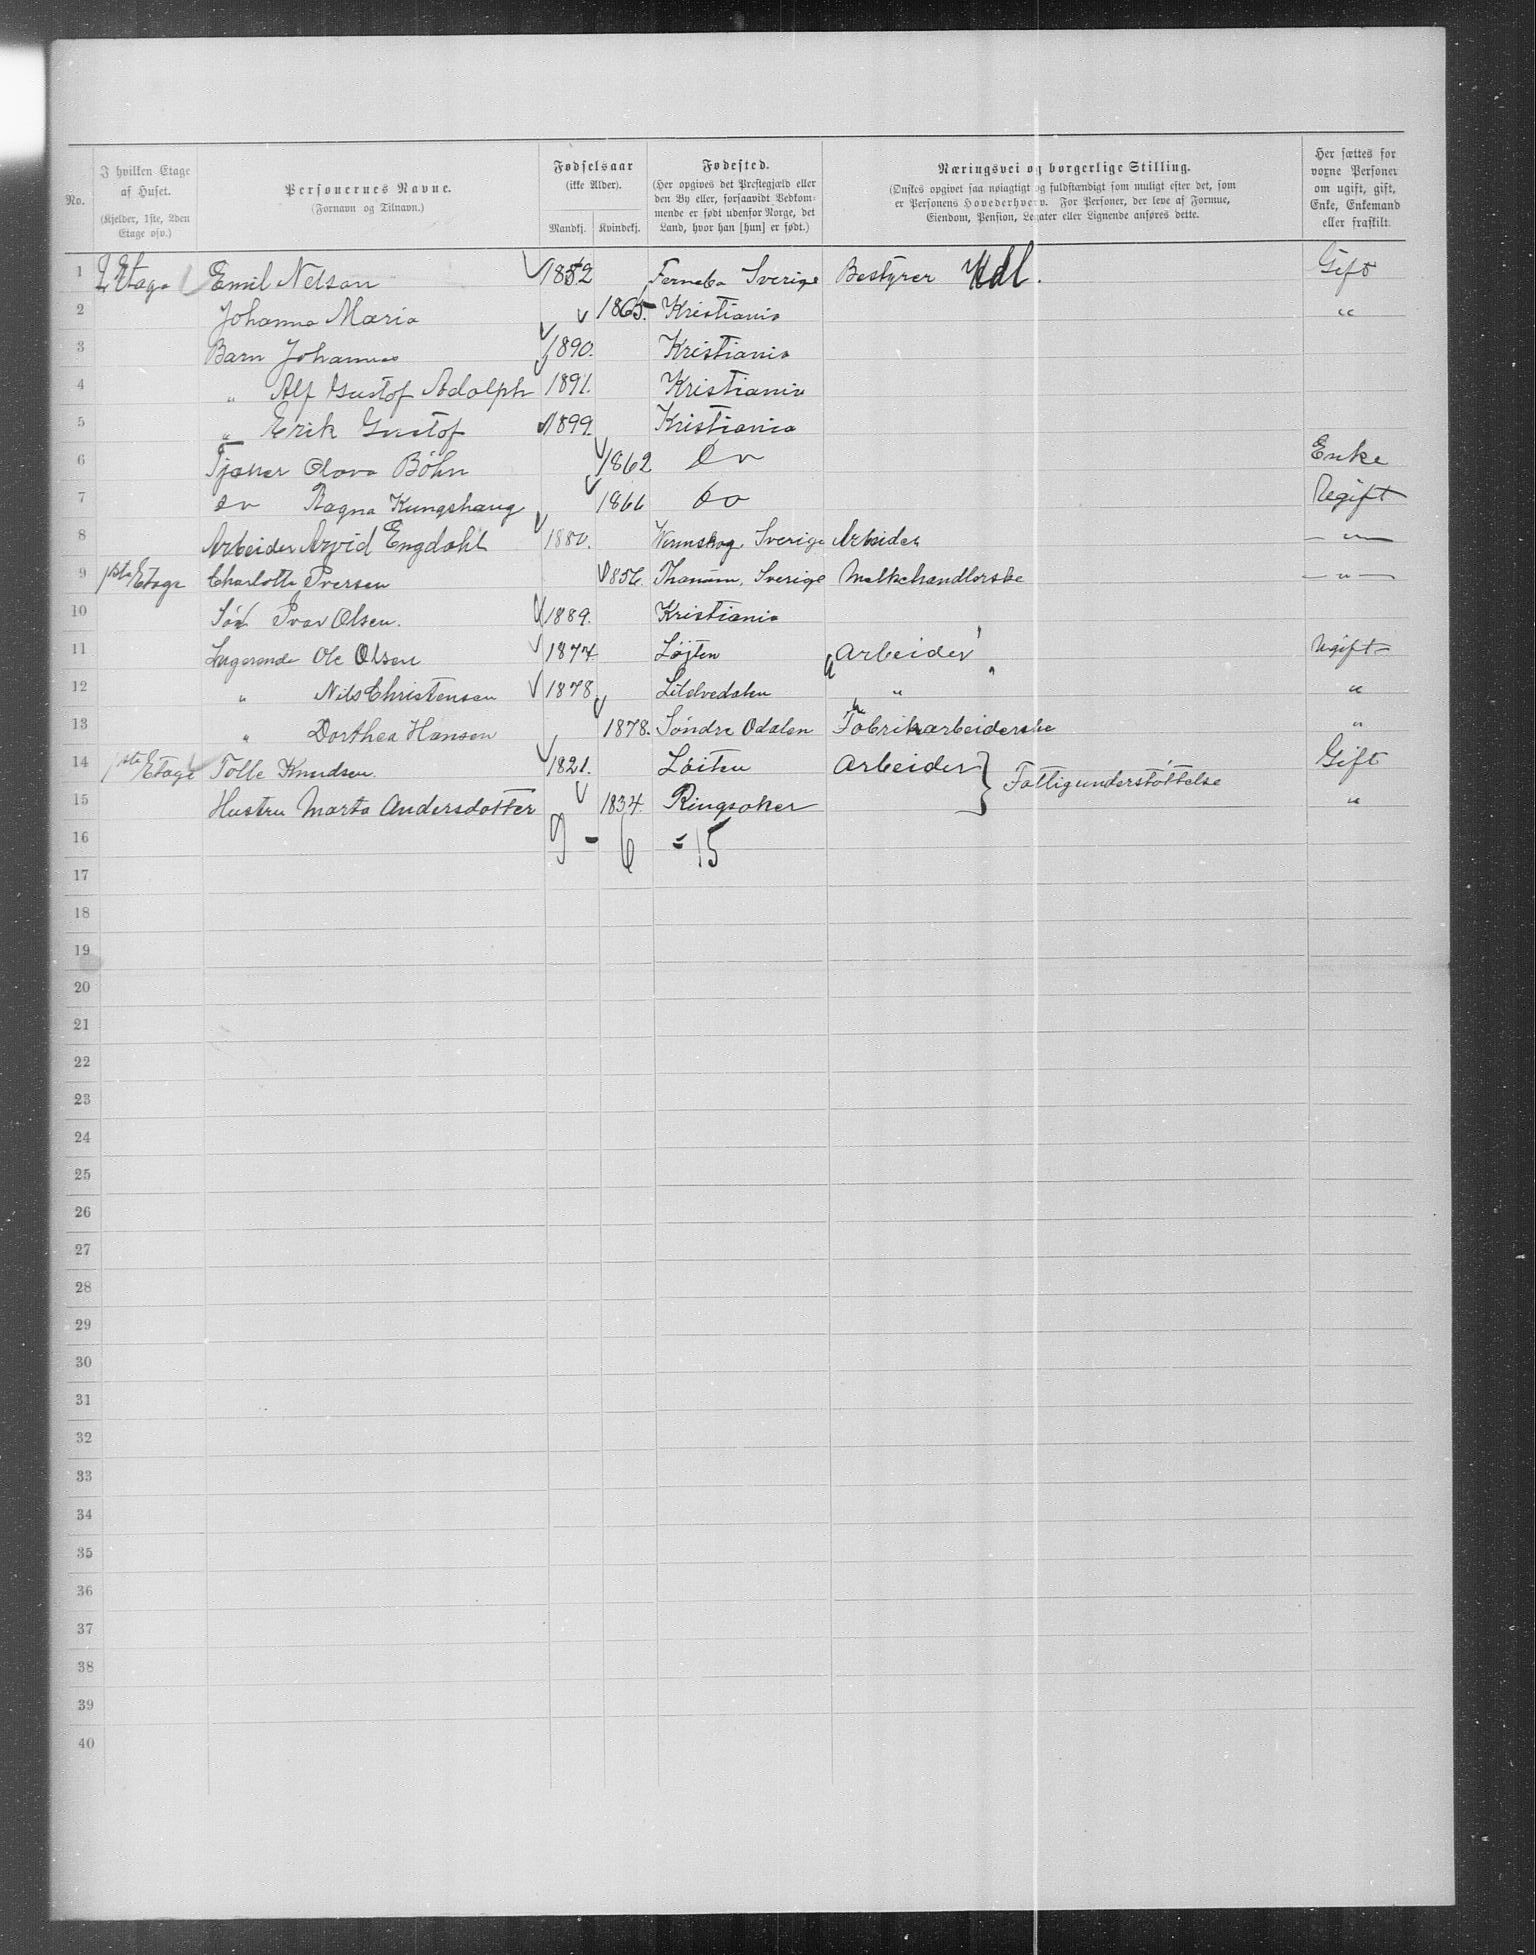 No. | I hvilken Etage af Huset. (Kjelder, 1ste, 2den Etage osv.) | Personernes Navne. (Fornavn og Tilnavn.) | Fødselsaar (ikke Alder). Mandkj. | Kvindekj. | Fødested. (Her opgives det Prestegjæld eller den By eller, forsaavidt Vedkommende er født udenfor Norge, det Land, hvor han [hun] er født.) | Næringsvei og borgerlige Stilling. (Ønskes opgivet saa nøiagtigt og fuldstændigt som muligt efter det, som er Personens Hovederhverv. For Personer, der leve af Formue, Eiendom, Pension, Legater eller Lignende anføres dette. | Her sættes for voxne Personer om ugift, gift, Enke, Enkemand eller fraskilt.
1 2 Etage Emil Nelson 1852 Ferneba Sverige Bestyrer Udl. Gift
2 Johanna Maria 1865. Kristiania "
3 Barn Johannes 1890. Kristiania
4 " Alf Gustof Adolph 1891. Kristiania
5 " Erik Gustof 1899. Kristiania
6 Tjener Olava Böhn 1862 Do Enke
7 do Ragna Kungshaug 1866 do Ugift
8 Arbeider Arvid Engdahl 1880. Wermskog Sverige Arbeider — " —
9 1ste Etage Charlotte Iversen 1856. Thanum, Sverige Melkehandlerske — " —
10 Søn Ivar Olsen. 1889. Kristiania
11 Logerende Ole Olsen 1874 Løjten Arbeider Ugift
12 " Nils Christensen 1878 Lilelvedalen " "
13 " Dorthea Hansen 1878. Søndre Odalen Fabrikarbeiderske "
14 1ste Etage Tolle Knudsen. 1821. Løiten Arbeider } Fattigunderstøttelse Gift
15 Hustru Marta Andersdotter 1834. Ringsaker "
16 9 - 6 = 15
17
18
19
20
21
22
23
24
25
26
27
28
29
30
31
32
33
34
35
36
37
38
39
40